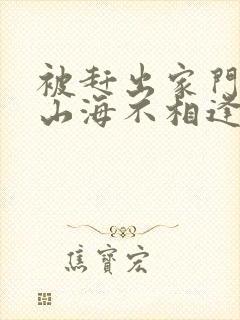 被赶出家門
山海不相逢
焦寶宏